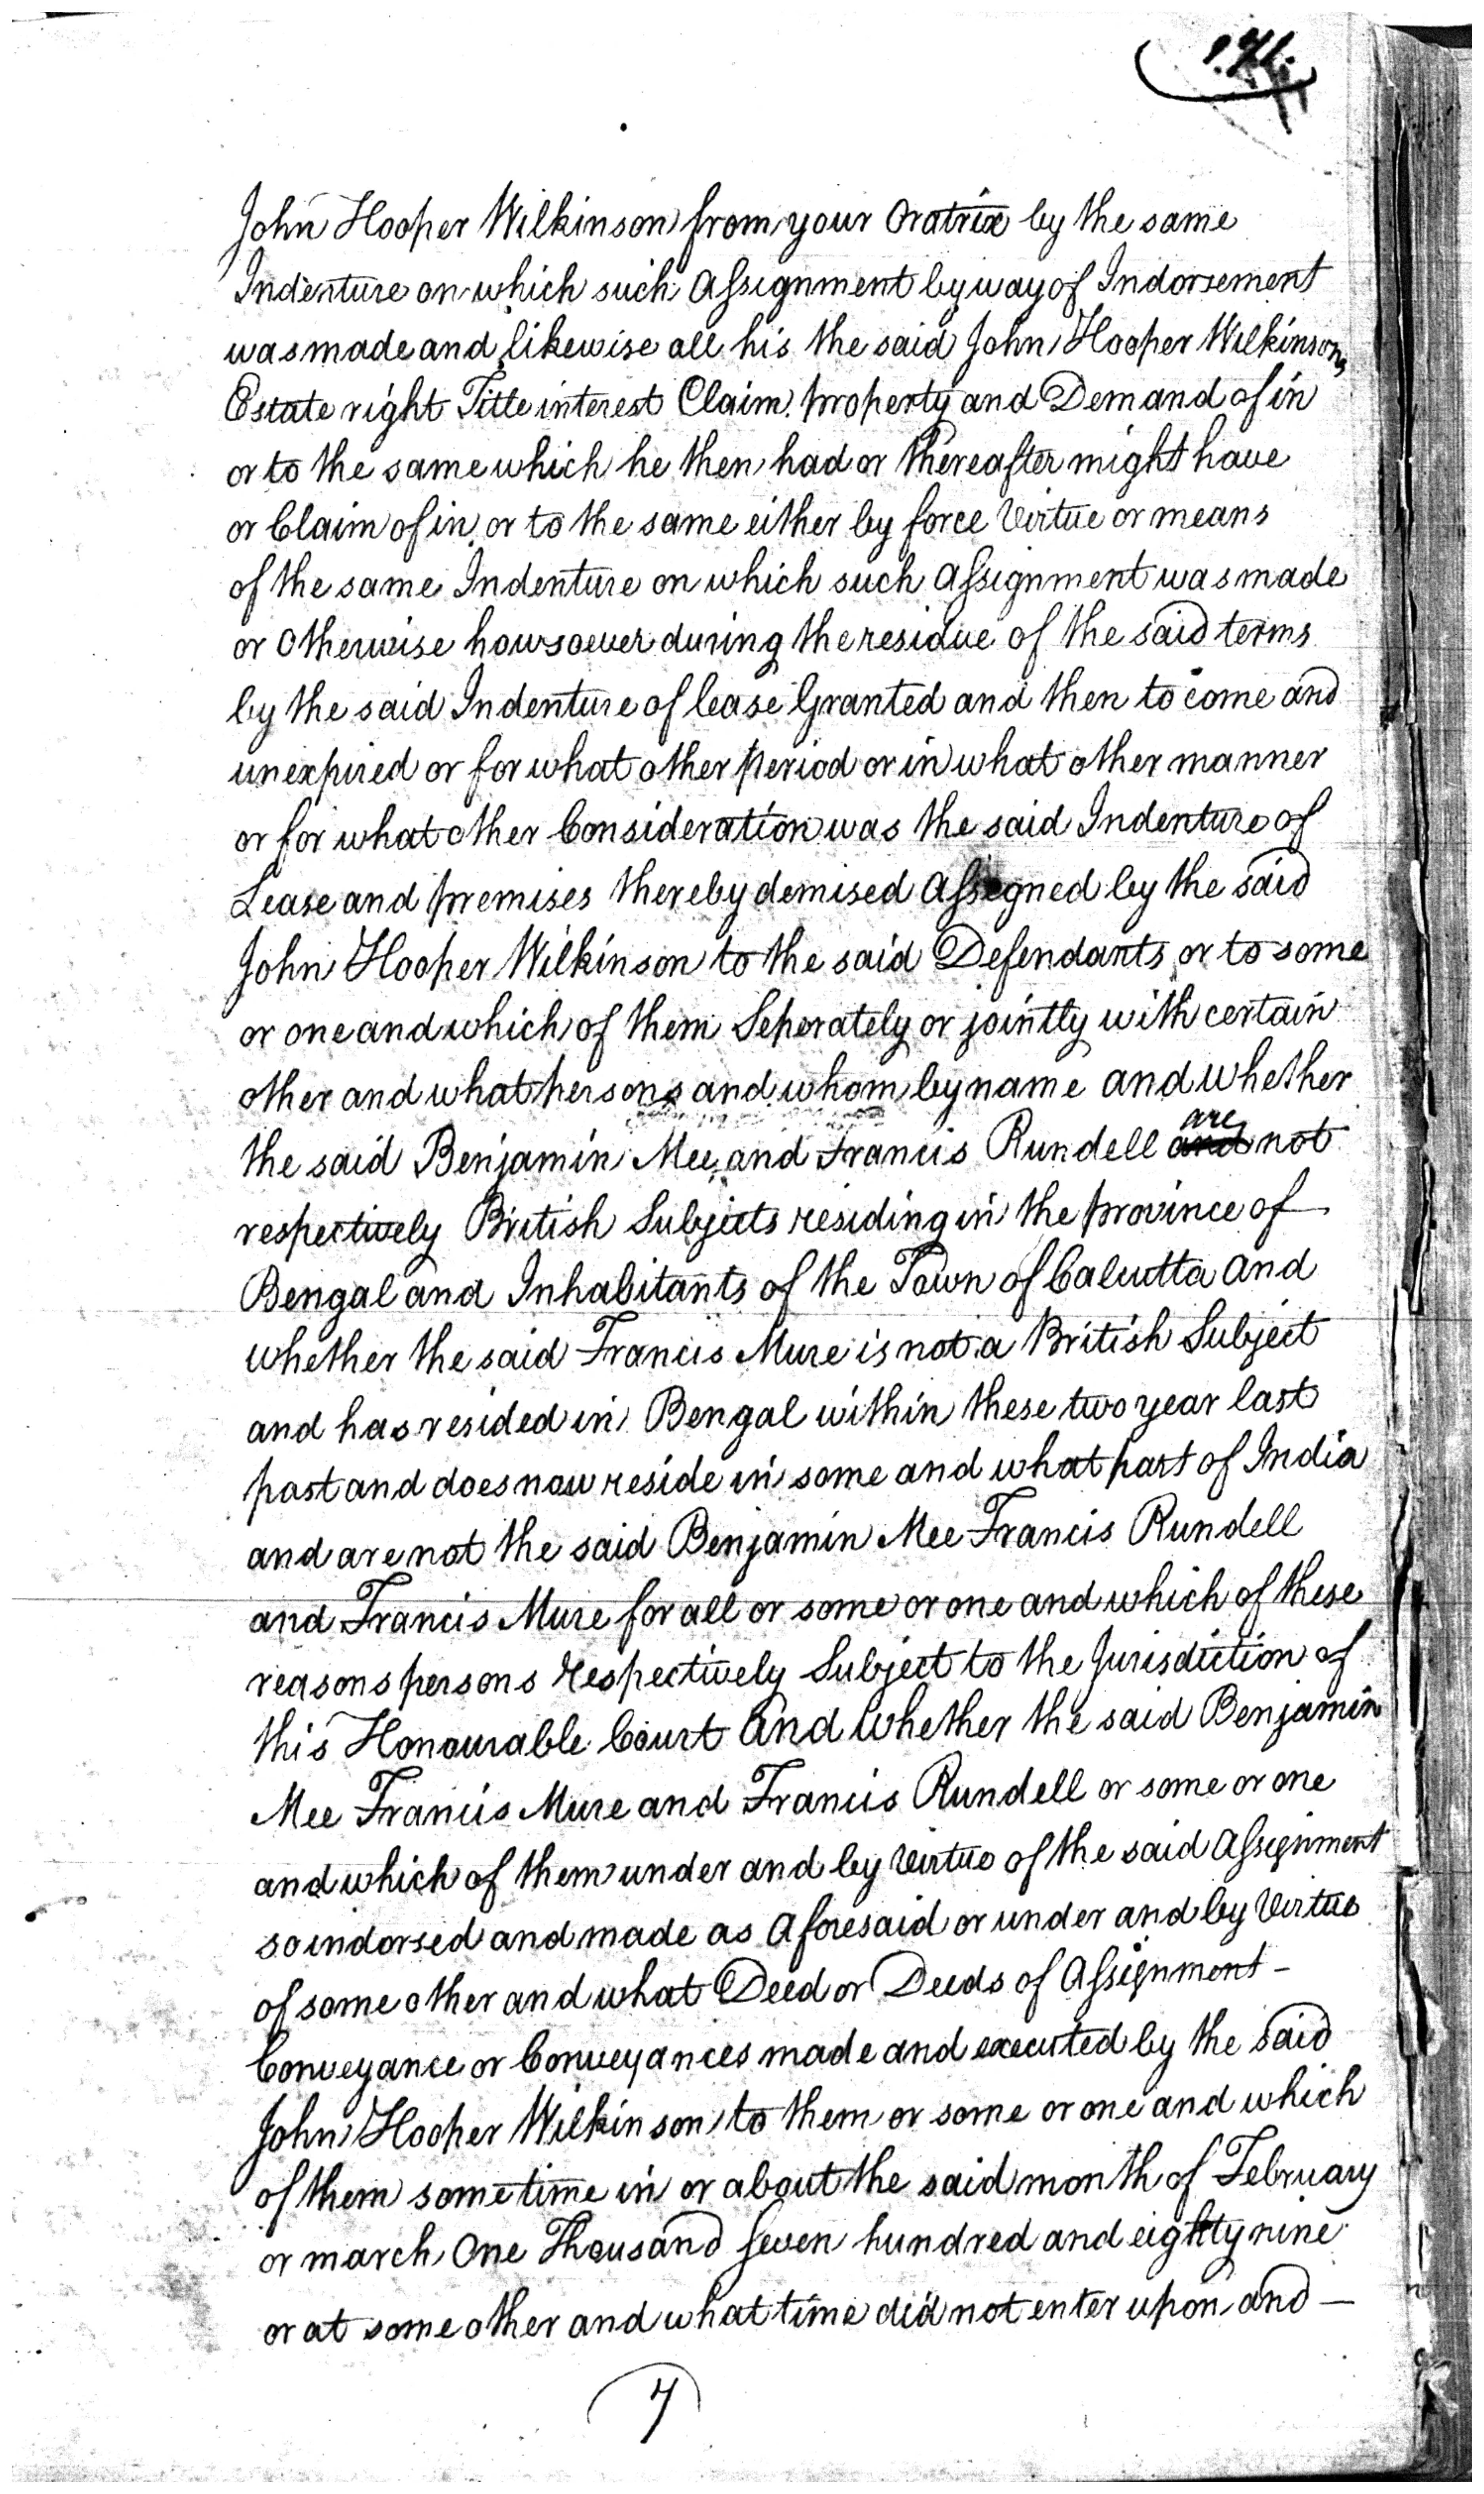 John Hooper Wilkinson from your Oratrix by the same
Indenture on which such Assignment by way of Indorsement
was made and likewise all his the said John Hooper Wilkinsons
Estate right Title interest Claim property and Demand of in
or to the same which he then had or thereafter might have
or Claim of in or to the same either by force Virtue or means
of the same Indenture on which such Assignment was made
or Otherwise howsoever during the residue of the said terms
by the said Indenture of lease Granted and then to come and
unexpired or for what other period or in what other manner
or for what other Consideration was the said Indenture of
Lease and premises thereby demised Assigned by the said
John Hooper Wilkinson to the said Defendants or to some
or one and which of them Seperately or jointly with certain
other and what persons and whom by name and whether
are
the said Benjamin Mee and Francis Rundell and not
respectively British Subjects residing in the province of
Bengal and Inhabitants of the Town of Calcutta and
whether the said Francis Mure is not a British Subject
and has resided in Bengal within these two year last
past and does now reside in some and what part of India
and are not the said Benjamin Mee Francis Rundell
and Francis Mure for all or some or one and which of these
reasons persons respectively Subject to the Jurisdiction of
this Honourable Court And Whether the said Benjamin
Mee Francis Mure and Francis Rundell or some or one
and which of them under and by Virtue of the said Assignment
so indorsed and made as Aforesaid or under and by Virtue
of some other and what Deed or Deeds of Assignment -
Conveyance or Conveyances made and executed by the said
John Hooper Wilkinson to them or some or one and which
of them sometime in or about the said month of February
or march One Thousand Seven hundred and eighty nine
or at some other and what time did not enter upon and —
7